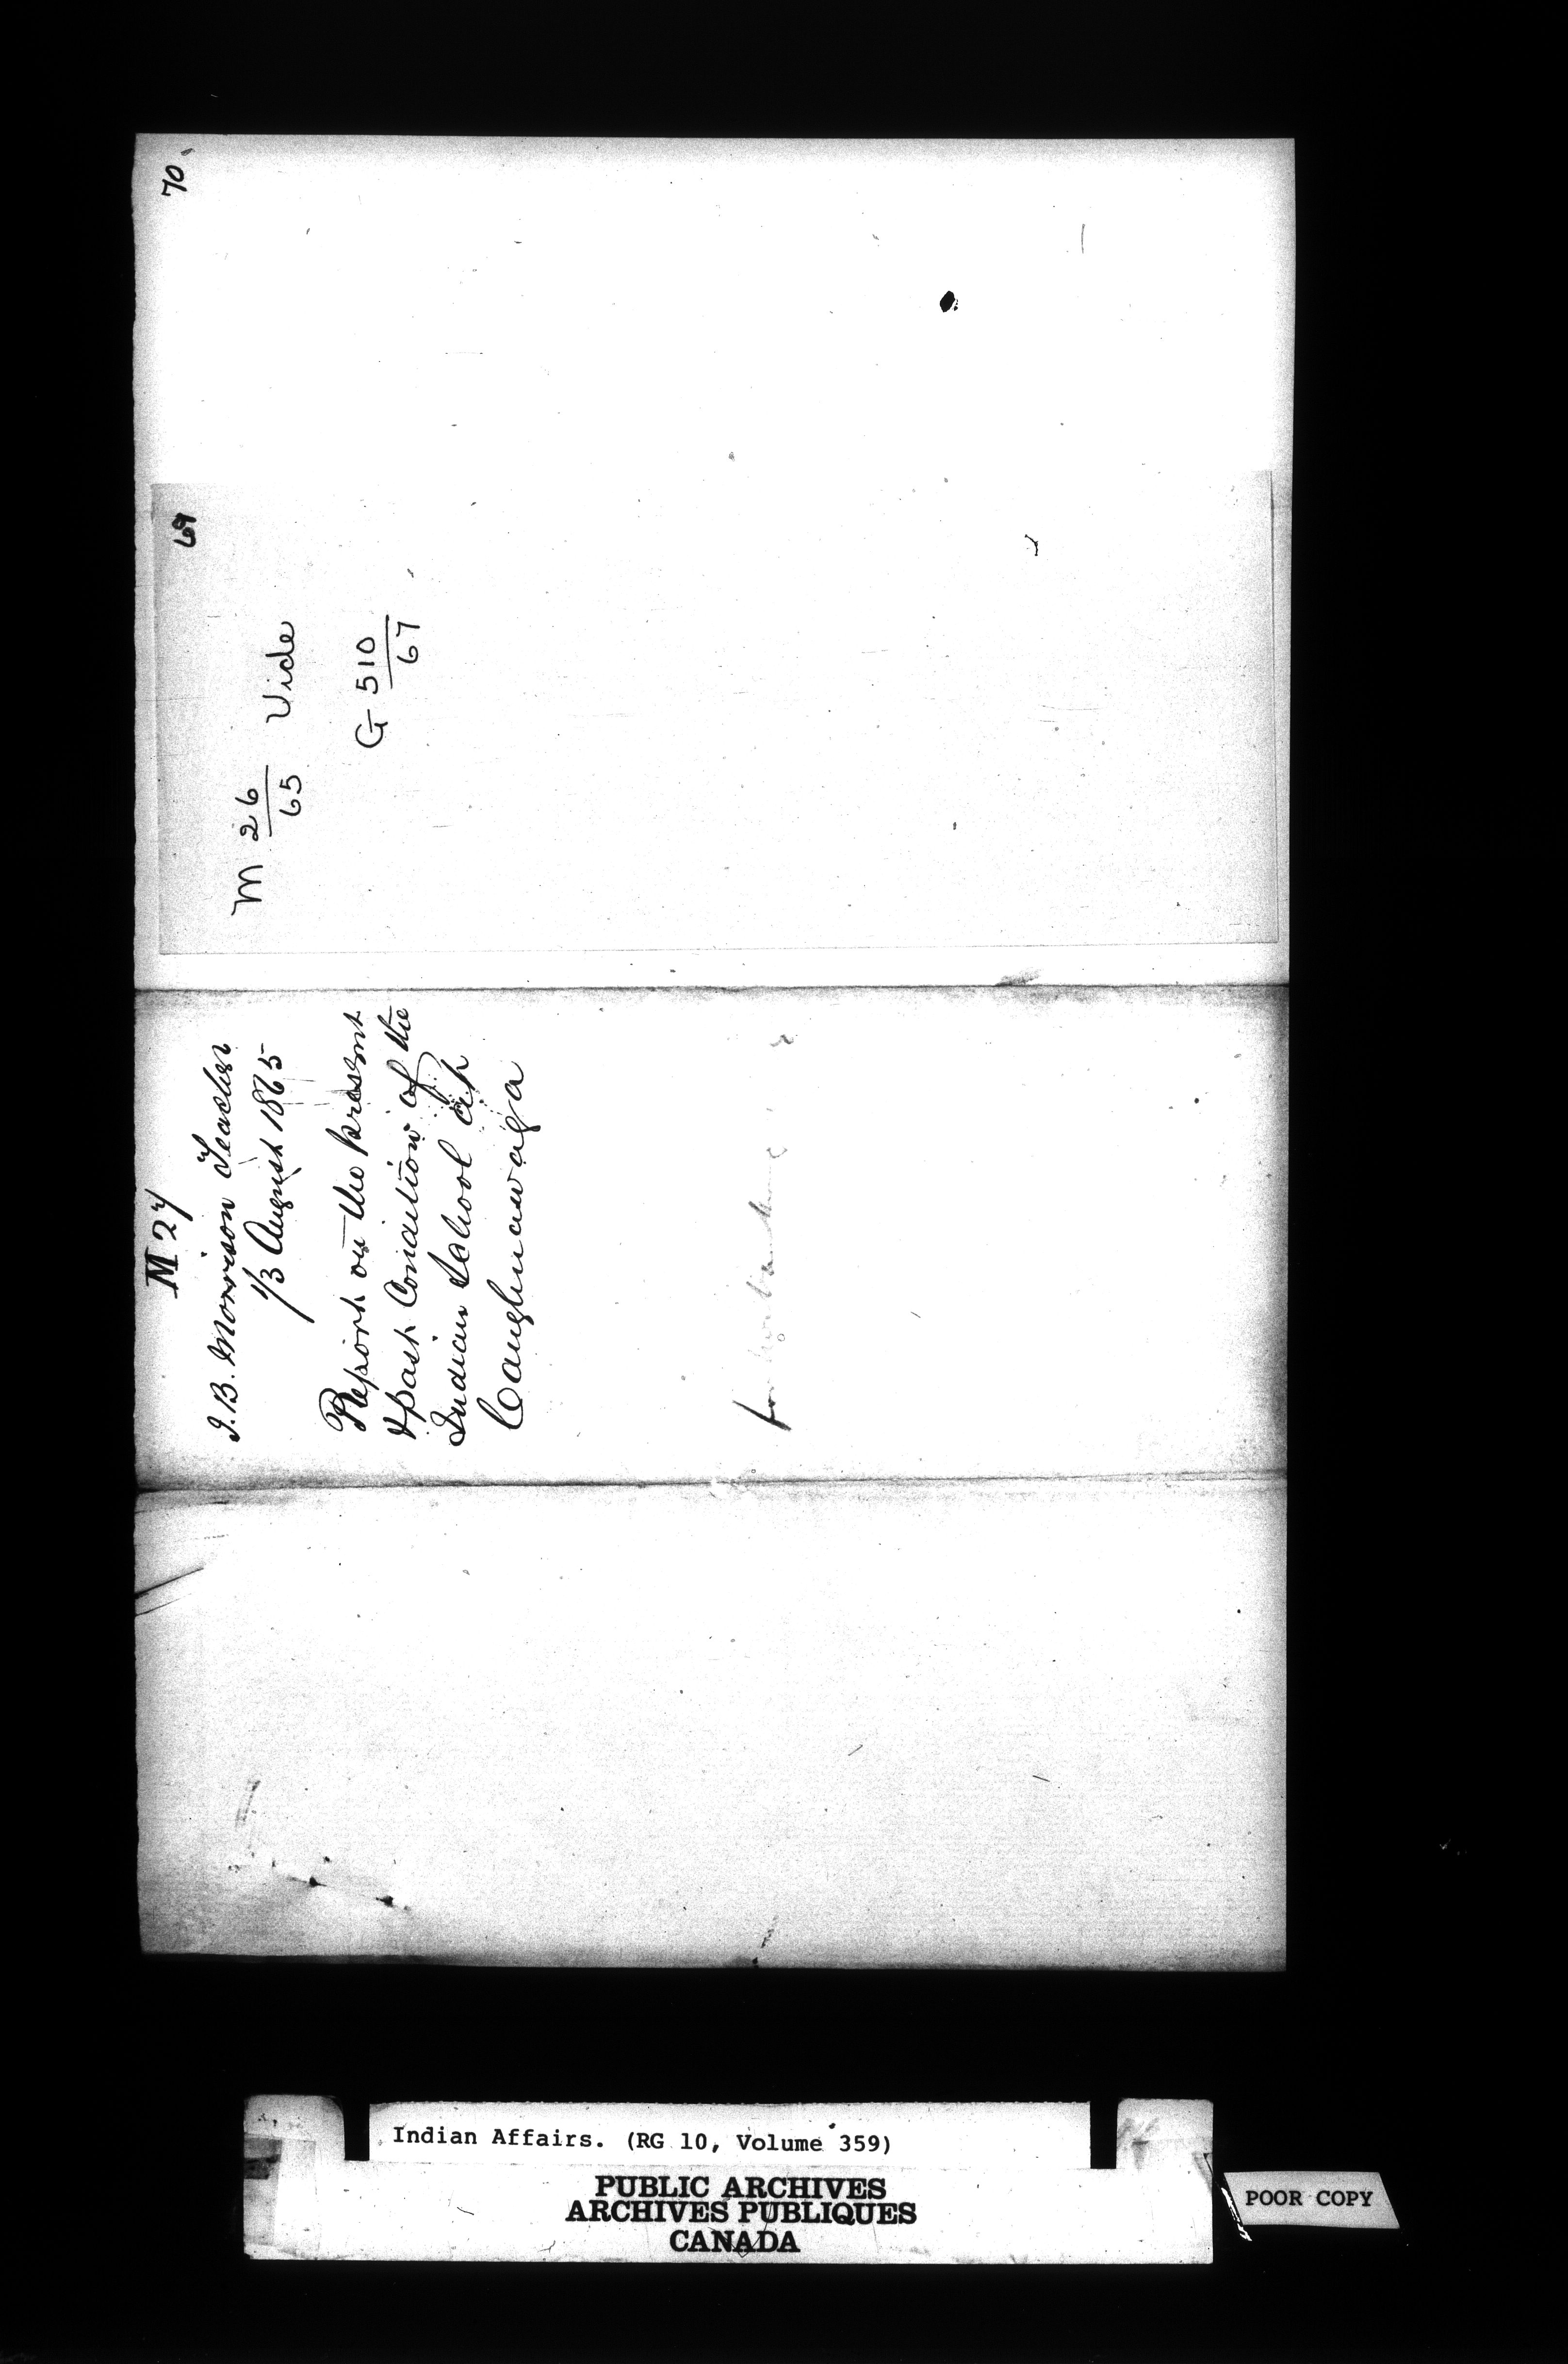 70
69
M 26/65 Vide
G 510/67
M 27
I. B. Morrison Teacher
1/3 August 1865
Report on the present
& past Condition of the
Indian School at
Caughnawaga
Indian Affairs. (RG 10, Volume 359)
PUBLIC ARCHIVES
ARCHIVES PUBLIQUES
CANADA
POOR COPY